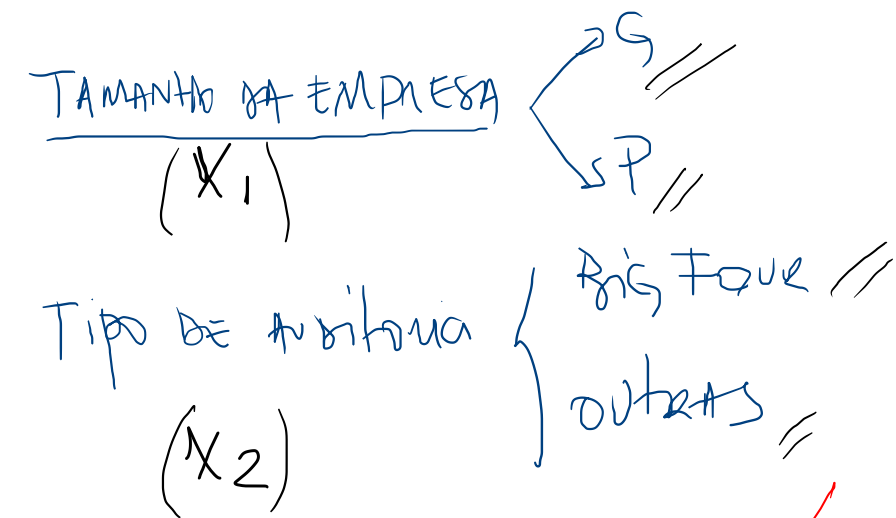 TAMANHO DA EMPRESA
G
P
(X1)
TIPO DE AUDITORIA
BIG FOUR
OUTRAS
(X2)